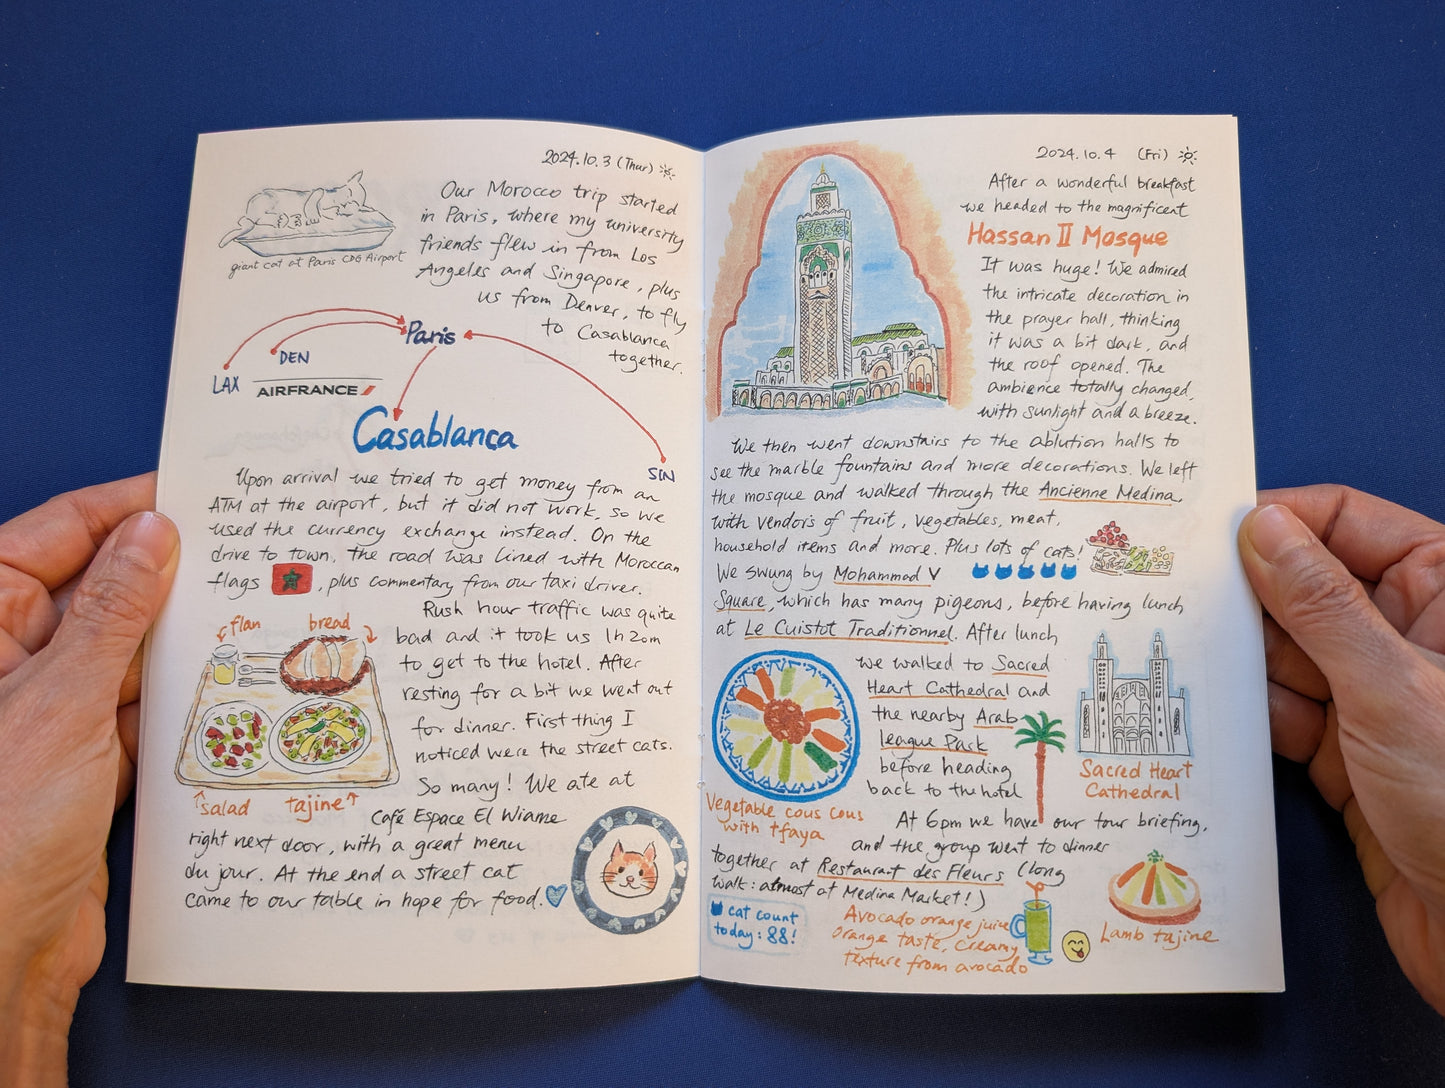 2024.10.3 (Thur)
giant cat at Paris CDG Airport
Our Morocco trip started
in Paris, where my university
friends flew in from Los
Angeles and Singapore, plus
us from Denver, to fly
to Casablanca
together.
Paris
DEN
LAX
AIRFRANCE
Casablanca
SIN
Upon arrival we tried to get money from an
ATM at the airport, but it did not work, so we
used the currency exchange instead. On the
drive to town, the road was lined with Moroccan
flags , plus commentary from our taxi driver.
Rush hour traffic was quite
bad and it took us 1h20m
to get to the hotel. After
resting for a bit we went out
for dinner. First thing I
noticed were the street cats.
So many! We ate at
Café Espace El Wiame
right next door, with a great menu
du jour. At the end a street cat
came to our table in hope for food.
flan
bread
salad
tajine
2024.10.4 (Fri)
After a wonderful breakfast
we headed to the magnificent
Hassan II Mosque
It was huge! We admired
the intricate decoration in
the prayer hall, thinking
it was a bit dark, and
the roof opened. The
ambience totally changed,
with sunlight and a breeze.
We then went downstairs to the ablution halls to
see the marble fountains and more decorations. We left
the mosque and walked through the Ancienne Medina,
with vendors of fruit, vegetables, meat,
household items and more. Plus lots of cats!
We swung by Mohammad V
Square, which has many pigeons, before having lunch
at Le Cuistot Traditionnel. After lunch
we walked to Sacred
Heart Cathedral and
the nearby Arab
league Park
before heading
back to the hotel
Sacred Heart
Cathedral
Vegetable cous cous
with tfaya
At 6pm we have our tour briefing,
and the group went to dinner
together at Restaurant des Fleurs (long
walk: almost at Medina Market!)
cat count
today: 88!
Avocado orange juice
Orange taste, creamy
texture from avocado
Lamb tajine